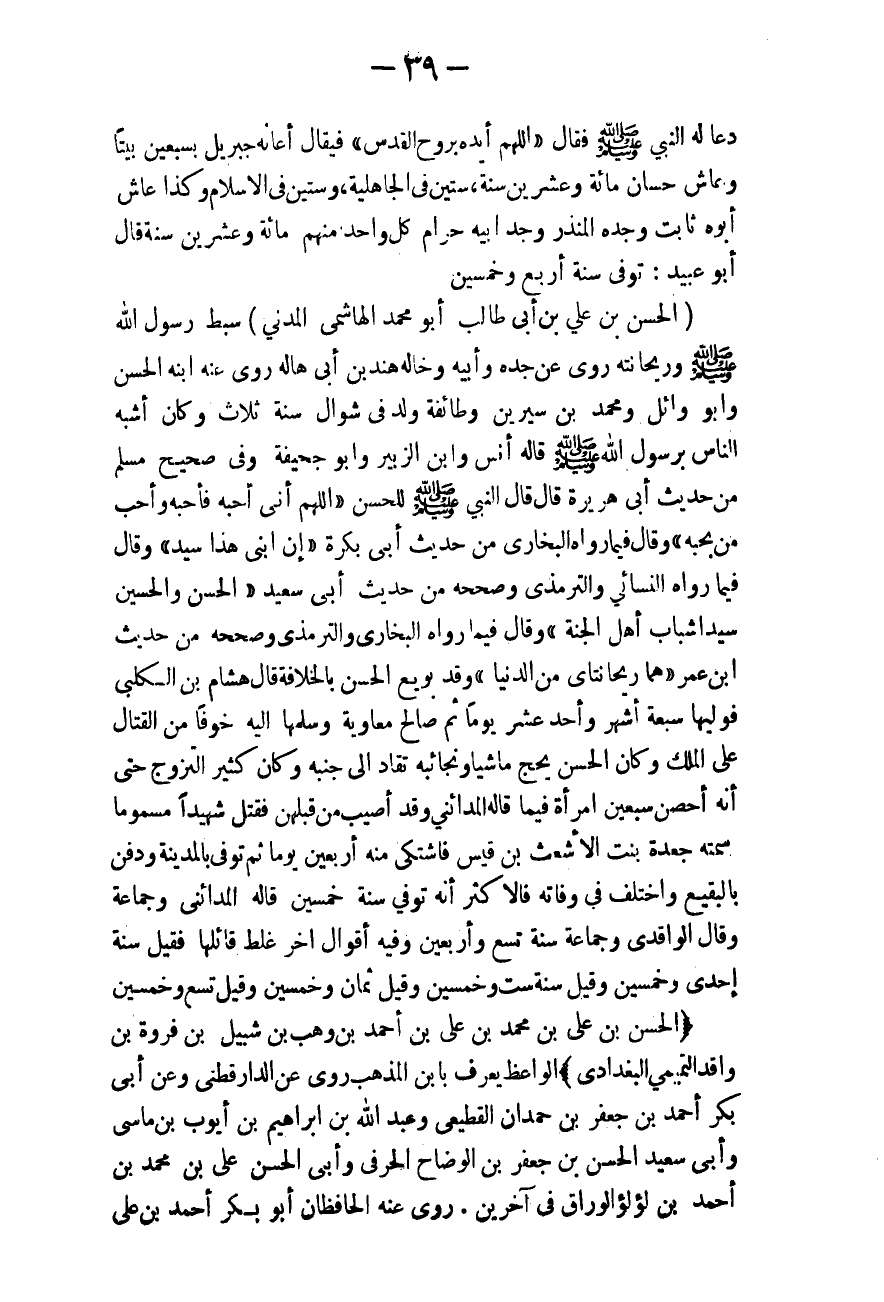 — ٣٩ —
دعا له النبي ﷺ فقال «اللهم أيده بروح القدس» فيقال أعانه جبريل بسبعين بيتاً
وعاش حسان مائة وعشرين سنة، ستين فى الجاهلية، وستين فى الاسلام وكذا عاش
أبوه ثابت وجده المنذر وجد ابيه حرام كل واحد منهم مائة وعشرين سنة قال
أبو عبيد : توفى سنة أربع وخمسين
( الحسن بن علي بن أبى طالب أبو محمد الهاشمى المدني ) سبط رسول الله
ﷺ وريحانته روى عن جده وأبيه وخاله هند بن أبى هاله روى عنه ابنه الحسن
وابو وائل ومحمد بن سيرين وطائفة ولد فى شوال سنة ثلاث وكان أشبه
الناس برسول الله ﷺ قاله أنس وابن الزبير وابو جحيفة وفى صحيح مسلم
من حديث أبى هريرة قال قال النبي ﷺ للحسن «اللهم أنى أحبه فأحبه وأحب
من يحبه» وقال فيما رواه البخارى من حديث أبى بكرة «إن ابنى هذا سيد» وقال
فيما رواه النسائي والترمذى وصححه من حديث أبى سعيد « الحسن والحسين
سيدا شباب أهل الجنة » وقال فيما رواه البخارى والترمذى وصححه من حديث
ابن عمر «هما ريحانتاى من الدنيا » وقد بويع الحسن بالخلافة قال هشام بن الكلبى
فوليها سبعة أشهر وأحد عشر يوماً ثم صالح معاوية وسلمها اليه خوفاً من القتال
على الملك وكان الحسن يحج ماشيا ونجائبه تقاد الى جنبه وكان كثير التزوج حتى
أنه أحصن سبعين امرأة فيما قاله المدائني وقد أصيب من قبلهن فقتل شهيداً مسموما
سمته جعدة بنت الأشعث بن قيس فاشتكى منه أربعين يوما ثم توفى بالمدينة ودفن
بالبقيع واختلف فى وفاته فالاكثر أنه توفي سنة خمسين قاله المدائنى وجماعة
وقال الواقدى وجماعة سنة تسع وأربعين وفيه أقوال اخر غلط قائلها فقيل سنة
إحدى وخمسين وقيل سنة ست وخمسين وقيل ثمان وخمسين وقيل تسع وخمسين
﴿الحسن بن على بن محمد بن على بن أحمد بن وهب بن شبيل بن فروة بن
واقد التميمي البغدادى ﴾ الواعظ يعرف بابن المذهب روى عن الدارقطنى وعن أبى
بكر أحمد بن جعفر بن حمدان القطيعى وعبد الله بن ابراهيم بن أيوب بن ماسى
وأبى سعيد الحسن بن جعفر بن الوضاح الحرفى وأبى الحسن على بن محمد بن
أحمد بن لؤلؤ الوراق فى آخرين . روى عنه الحافظان أبو بكر أحمد بن على